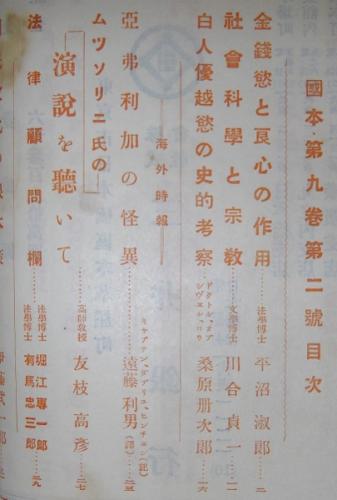 國本・第九卷第二號目次
金錢慾と良心の作用 法學博士 平沼淑郎 二
社會科學と宗教 文學博士 川合貞一 一一
白人優越慾の史的考察 桑原册次郎 一六
海外時報
亞弗利加の怪異 キャプテン、ダブリユ、ヒンチェン(記) 遠藤利男(譯) 二三
ムツソリニ氏の
演說を聽いて 高師教授 友枝高彥 二七
法律顧問欄 法學博士 堀江專一郎 法學博士 有馬忠三郎 二九